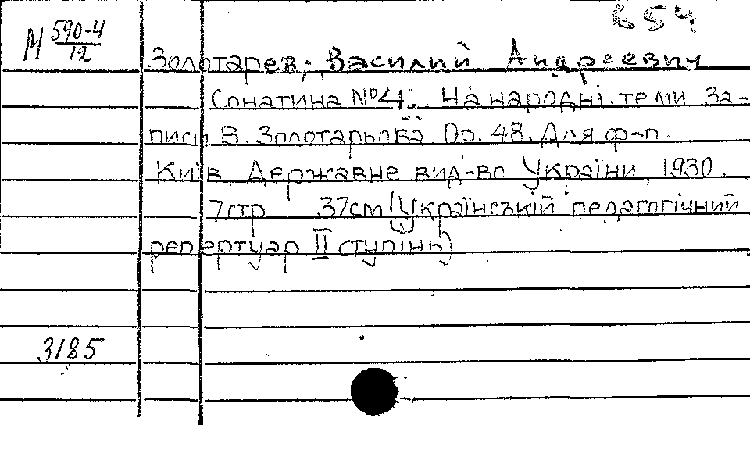 654
М 590-4
12
Золотарев, Василий Андреевич
Сонатина №4. На народні теми за-
писи В. Золотарьова Ор. 48. Для ф-п.
Київ Державне вид-во України, 1930.
7стр 37см (Український педагогічний
репертуар II ступінь)
3185